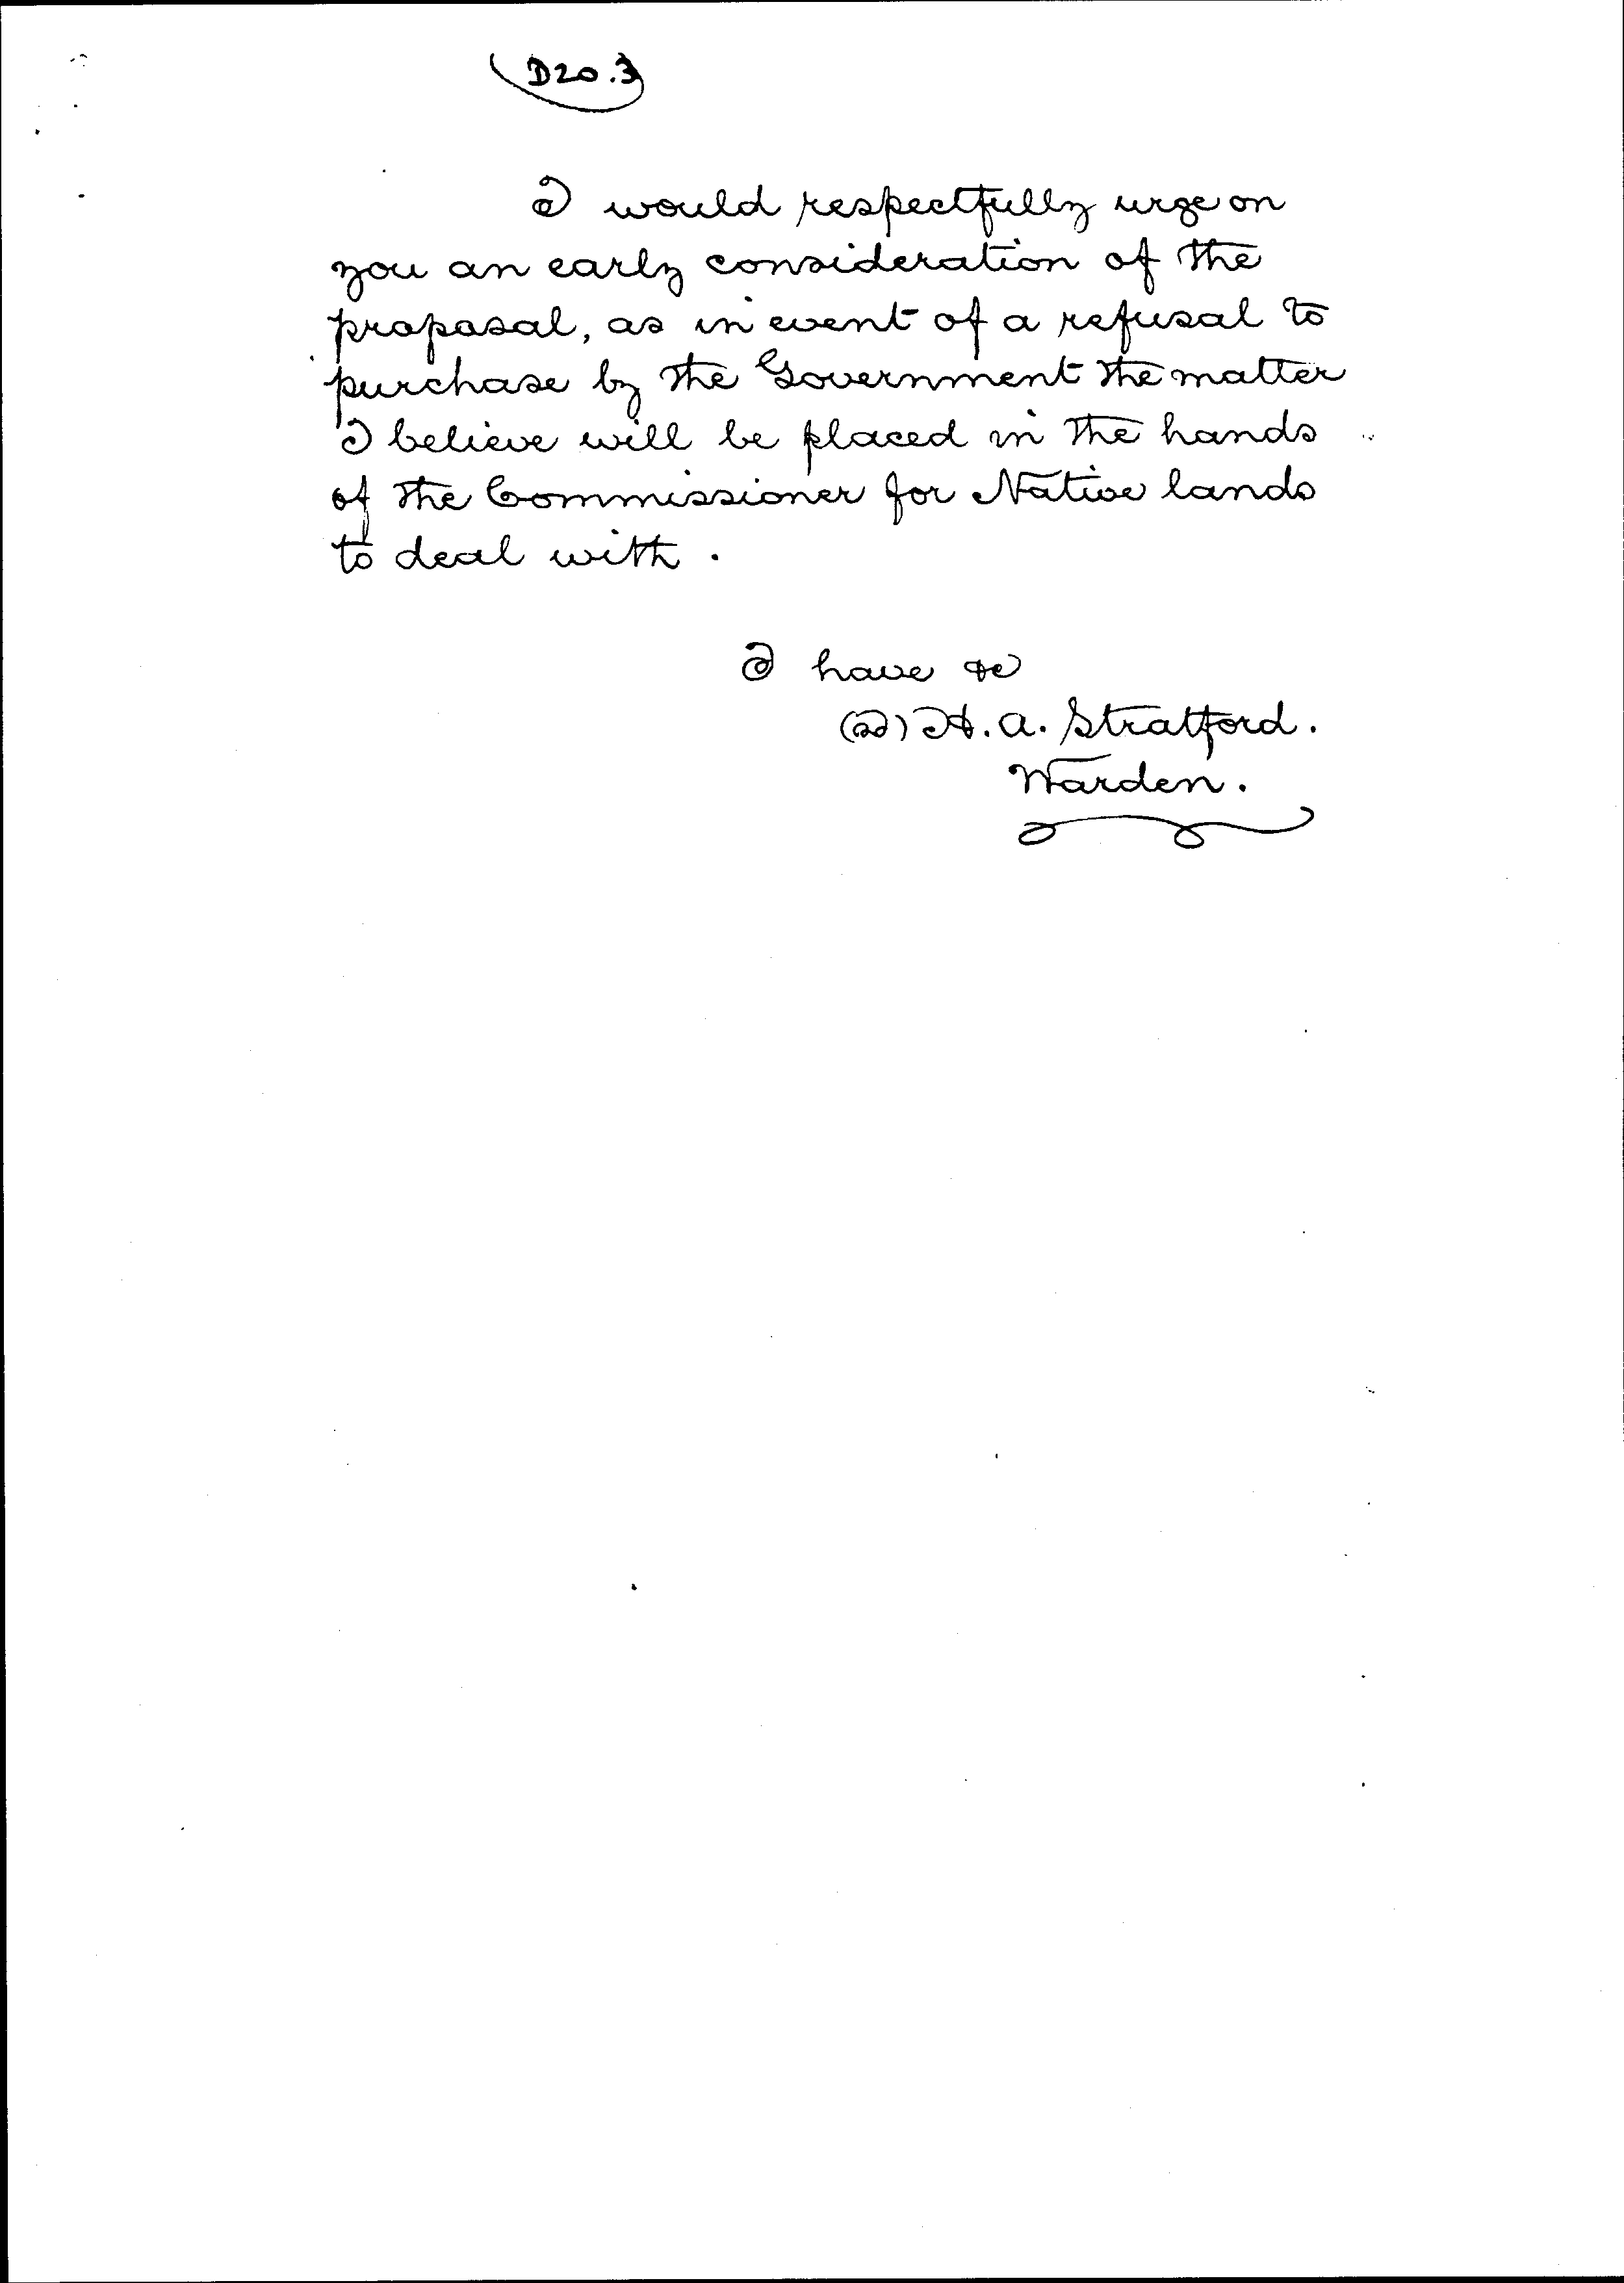 D20.3
I would respectfully urge on
you an early consideration of the
proposal, as in event of a refusal to
purchase by the Government the matter
I believe will be placed in the hands
of the Commissioner for Native lands
to deal with.
I have &c
(Sd) H. A. Stratford.
Warden.